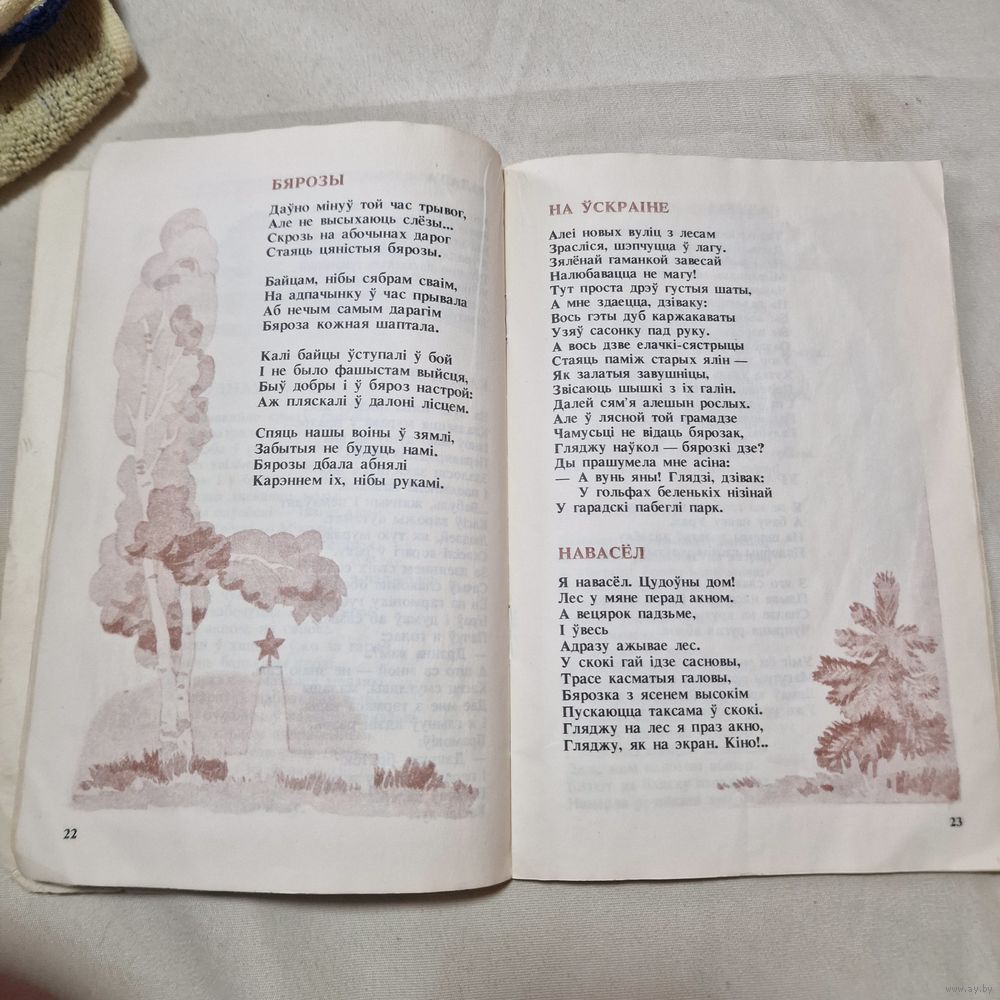 БЯРОЗЫ
Даўно мінуў той час трывог,
Але не высыхаюць слёзы...
Скрозь на абочынах дарог
Стаяць цяністыя бярозы.
Байцам, нібы сябрам сваім,
На адпачынку ў час прывала
Аб нечым самым дарагім
Бяроза кожная шаптала.
Калі байцы ўступалі ў бой
І не было фашыстам выйсця,
Быў добры і ў бяроз настрой:
Аж пляскалі ў далоні лісцем.
Спяць нашы воіны ў зямлі,
Забытыя не будуць намі.
Бярозы дбала абнялі
Карэннем іх, нібы рукамі.
22
НА ЎСКРАІНЕ
Алеі новых вуліц з лесам
Зрасліся, шэпчуцца ў лагу.
Зялёнай гаманкой завесай
Налюбавацца не магу!
Тут проста дрэў густыя шаты,
А мне здаецца, дзіваку:
Вось гэты дуб каржакаваты
Узяў сасонку пад руку.
А вось дзве елачкі-сястрыцы
Стаяць паміж старых ялін —
Як залатыя завушніцы,
Звісаюць шышкі з іх галін.
Далей сям'я алешын рослых.
Але ў лясной той грамадзе
Чамусьці не відаць бярозак,
Гляджу наўкол — бярозкі дзе?
Ды прашумела мне асіна:
— А вунь яны! Глядзі, дзівак:
У гольфах беленькіх нізінай
У гарадскі пабеглі парк.
НАВАСЁЛ
Я навасёл. Цудоўны дом!
Лес у мяне перад акном.
А вецярок падзьме,
І ўвесь
Адразу ажывае лес.
У скокі гай ідзе сасновы,
Трасе касматыя галовы,
Бярозка з ясенем высокім
Пускаюцца таксама ў скокі.
Гляджу на лес я праз акно,
Гляджу, як на экран. Кіно!..
23
www.ay.by